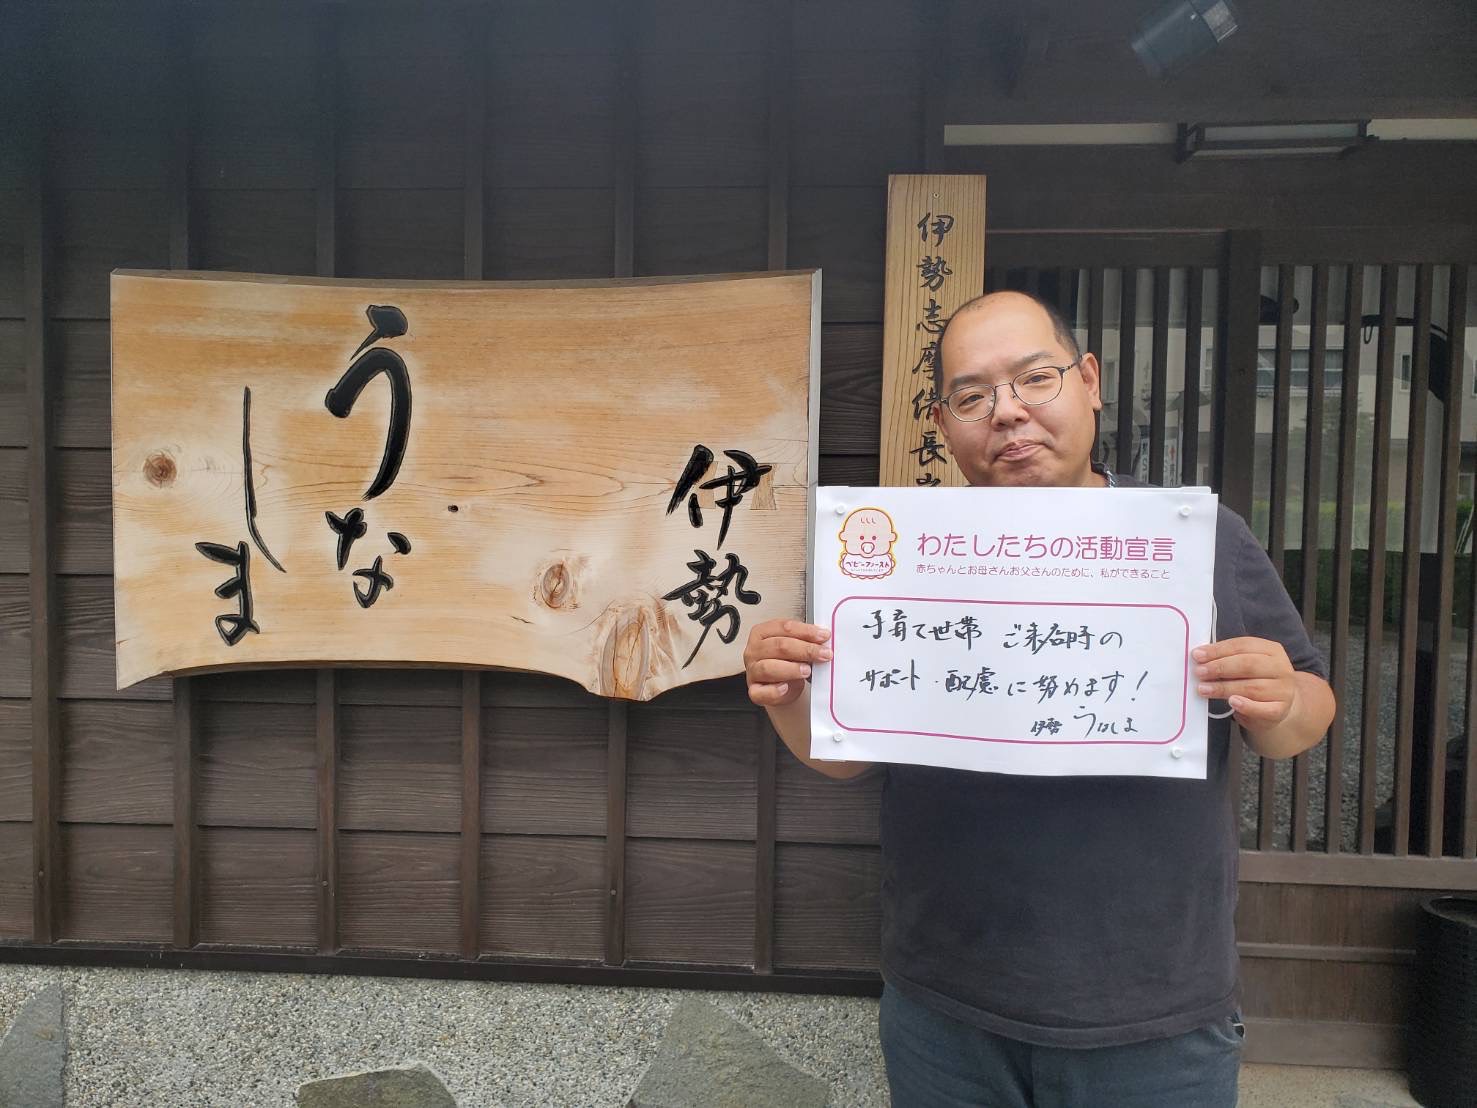 伊勢
うな
しま
伊勢志摩備長
ベビーファースト
わたしたちの活動宣言
赤ちゃんとお母さんお父さんのために、私ができること
子育て世帯 ご来店時の
サポート・配慮に努めます!
伊勢 うなしま